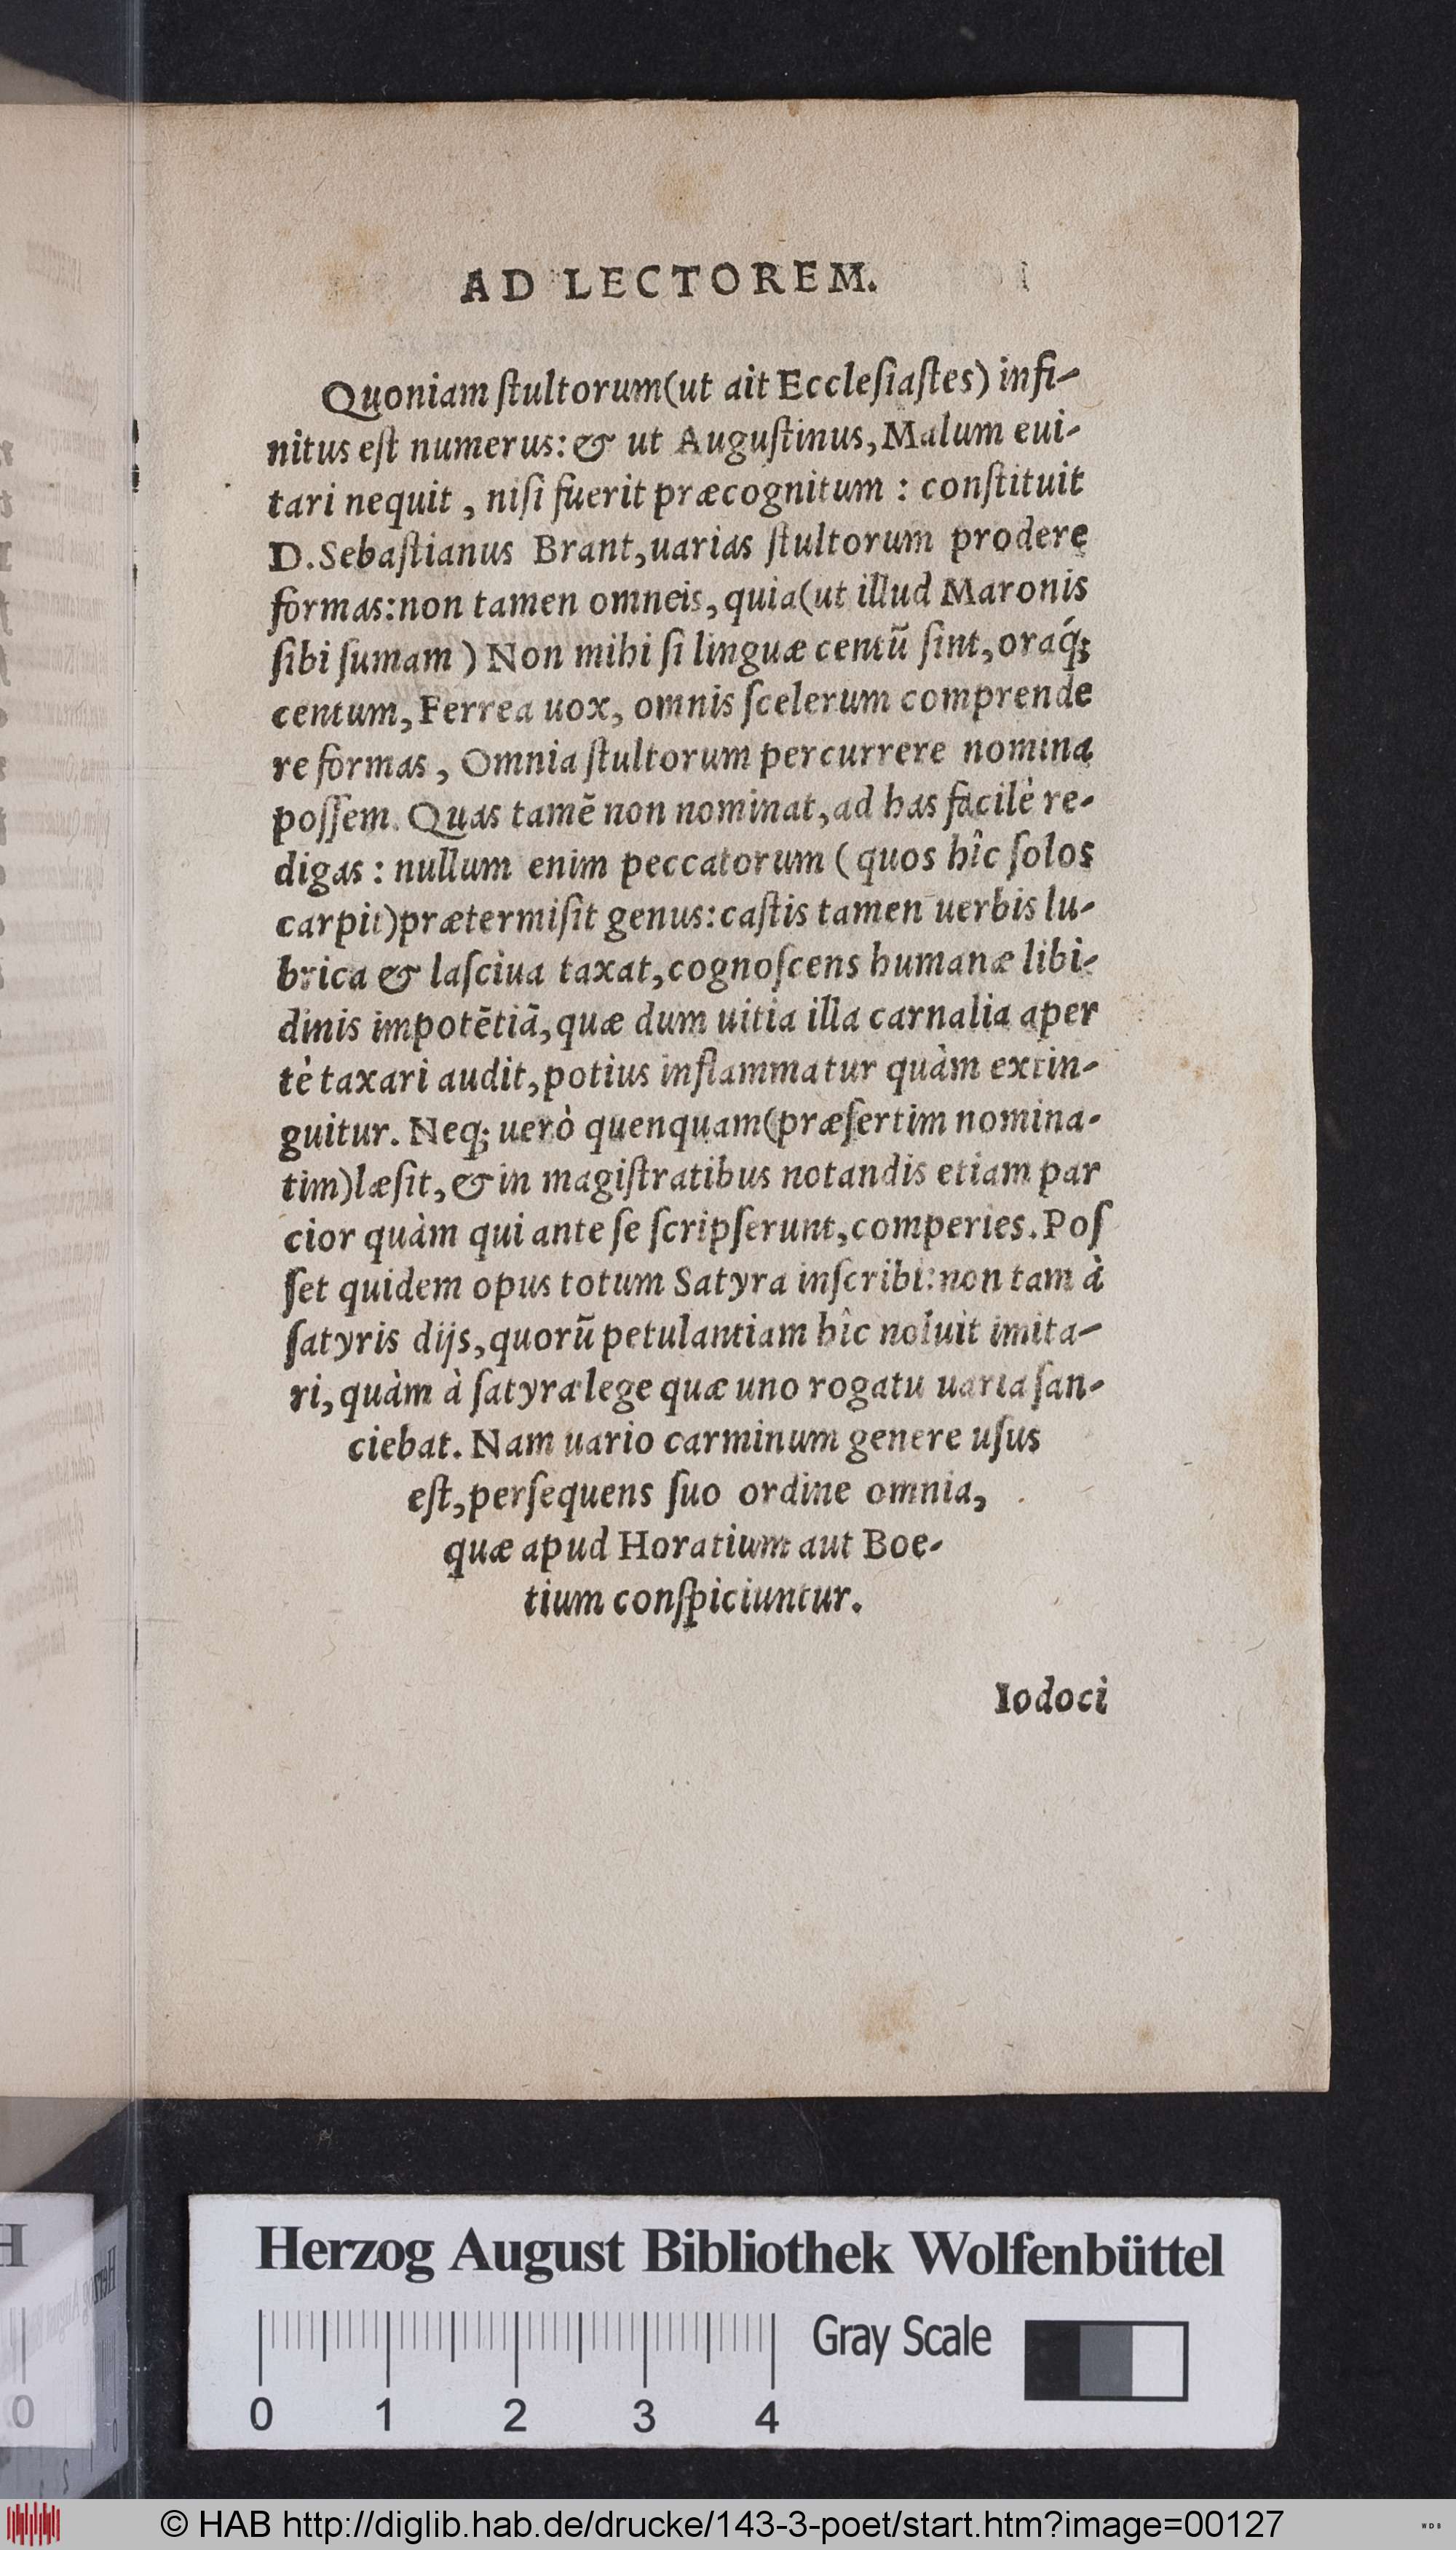 AD LECTOREM.
Quoniam ſtultorum(ut ait Eccleſiaſtes) infi-
nitus eſt numerus: & ut Auguſtinus, Malum eui-
tari nequit , niſi fuerit præcognitum : conſtituit
D. Sebaſtianus Brant, uarias ſtultorum prodere
formas: non tamen omneis, quia(ut illud Maronis
ſibi ſumam ) Non mihi ſi linguæ centũ ſint, oraq́;
centum, Ferrea uox, omnis ſcelerum comprende
re formas , Omnia ſtultorum percurrere nomina
poſſem. Quas tamẽ non nominat, ad has facilè re-
digas : nullum enim peccatorum ( quos hîc ſolos
carpit)prætermiſit genus: caſtis tamen uerbis lu-
brica & laſciua taxat, cognoſcens humanæ libi-
dinis impotẽtiã, quæ dum uitia illa carnalia aper
tè taxari audit, potius inflammatur quàm extin-
guitur. Neq; uerò quenquam(præſertim nomina-
tim)læſit, & in magiſtratibus notandis etiam par
cior quàm qui ante ſe ſcripſerunt, comperies. Poſ
ſet quidem opus totum Satyra inſcribi: non tam à
ſatyris dijs, quorũ petulantiam hîc noluit imita-
ri, quàm à ſatyra lege quæ uno rogatu uaria ſan-
ciebat. Nam uario carminum genere uſus
eſt, perſequens ſuo ordine omnia,
quæ apud Horatium aut Boe-
tium conſpiciuntur.
Iodoci
Herzog August Bibliothek Wolfenbüttel
Gray Scale
0 1 2 3 4
© HAB http://diglib.hab.de/drucke/143-3-poet/start.htm?image=00127